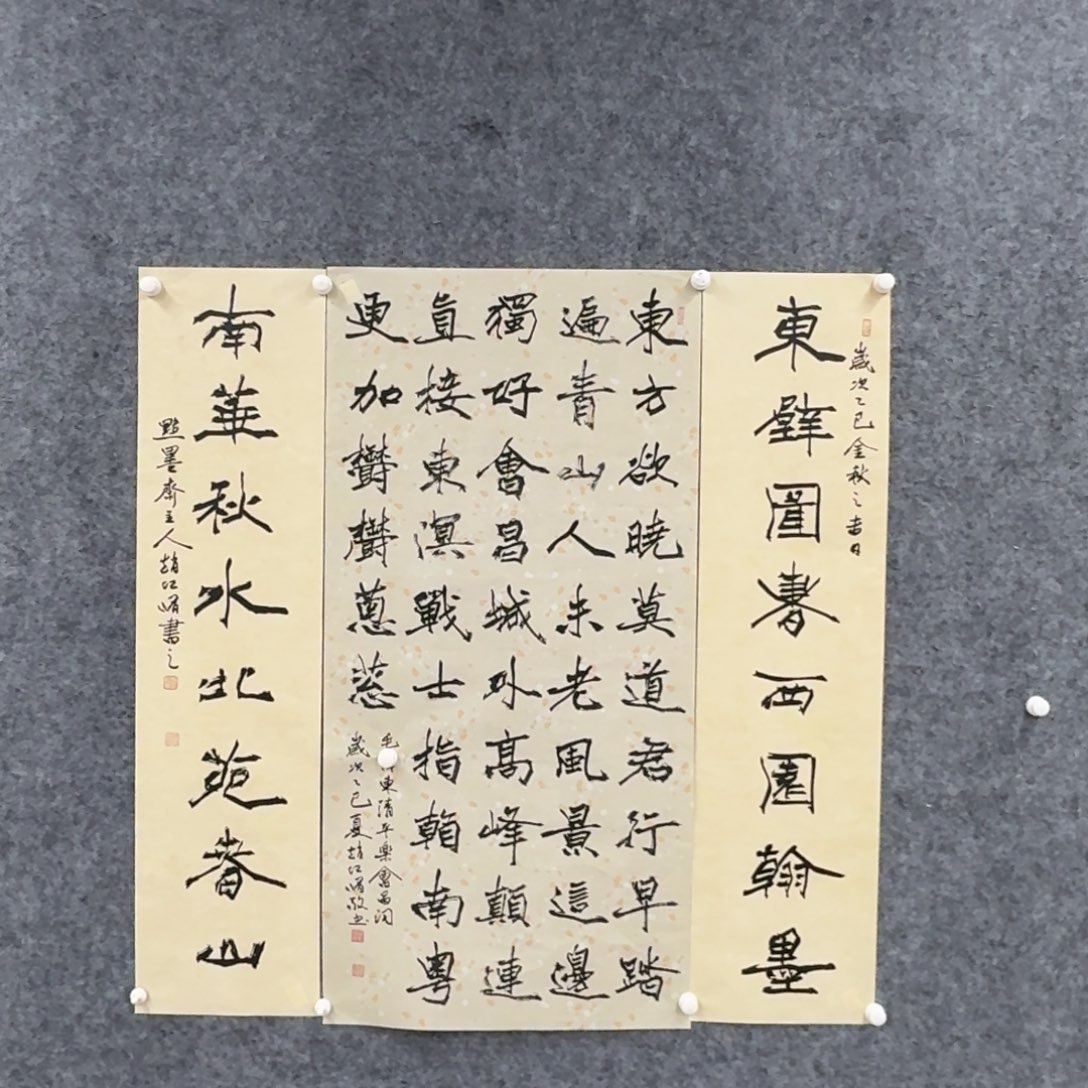 歲次乙巳金秋之吉日
東壁圖書西園翰墨
東方欲曉莫道君行早踏
遍青山人未老風景這邊
獨好會昌城外高峰顛連
直接東溟戰士指看南粤
更加鬱鬱蔥蔥
毛東清平樂會昌詞
歲次乙巳夏趙江嵋敬書
南華秋水北苑春山
點墨齋主人趙江嵋書之